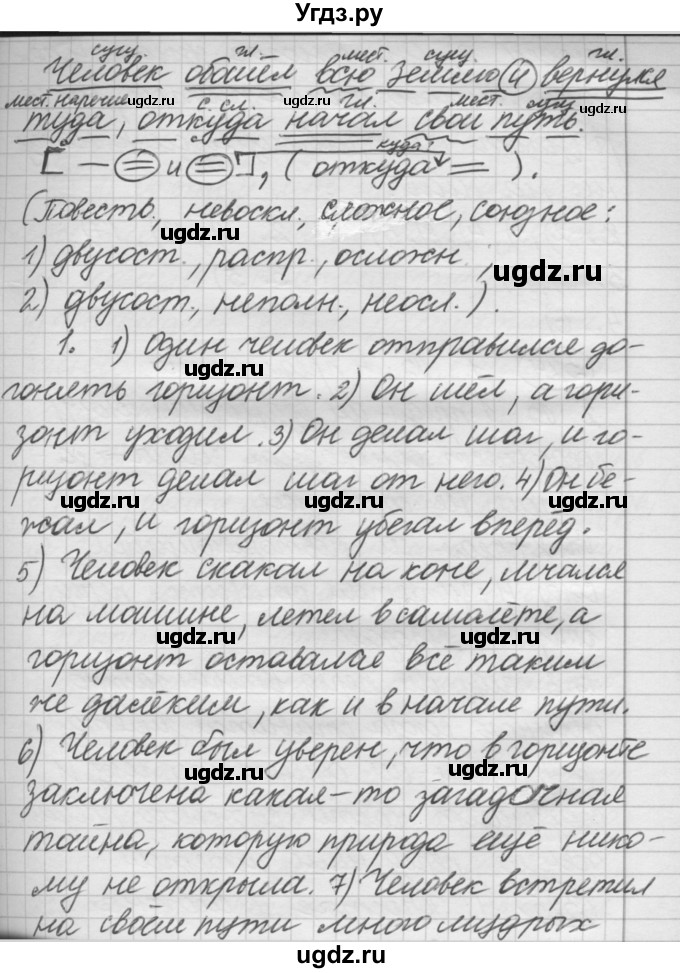 Угдз.ру
сущ. гл. мест. сущ. гл.
Человек обошёл всю землю и вернулся
мест. наречие с. сл. гл. мест. сущ.
туда, откуда начал свой путь.
куда?
[ — = и = ], ( откуда = ).
(Повеств., невоскл., сложное, союзное:
1) двусост., распр., осложн.,
2) двусост., неполн., неосл.).
1. 1) Один человек отправился до-
гонять горизонт. 2) Он шёл, а гори-
зонт уходил. 3) Он делал шаг, и го-
ризонт делал шаг от него. 4) Он бе-
жал, и горизонт убегал вперёд.
5) Человек скакал на коне, мчался
на машине, летел в самолёте, а
горизонт оставался всё таким
же далёким, как и в начале пути.
6) Человек был уверен, что в горизонте
заключена какая-то загадочная
тайна, которую природа ещё нико-
му не открыла. 7) Человек встретил
на своём пути много мудрых
ugdz.ru